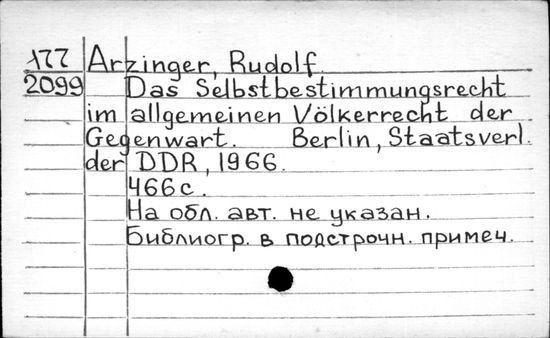 177 Arzinger, Rudolf.
2099 Das Selbstbestimmungsrecht
im allgemeinen Völkerrecht der
Gegenwart. Berlin, Staatsverl.
der DDR, 1966.
466 с.
На обл. авт. не указан.
Библиогр. в подстрочн. примеч.